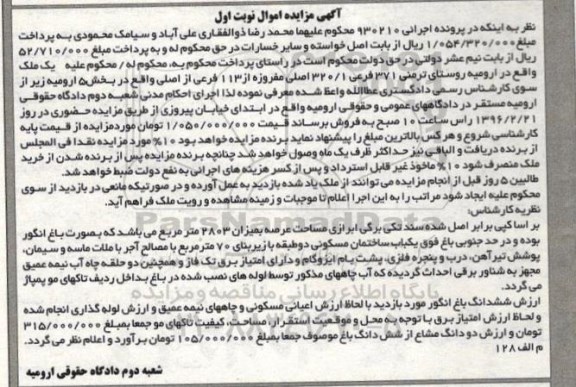 آگهی مزایده اموال نوبت اول
نظر به اینکه در پرونده اجرائی ۹۳۰۲۱۰ محکوم علیهما محمد رضا ذوالفقاری علی آباد و سیامک محمودی به پرداخت
مبلغ ۱/۰۵۴/۳۲۰/۰۰۰ ریال از بابت اصل خواسته و سایر خسارات در حق محکوم له و به پرداخت مبلغ ۵۲/۷۱۰/۰۰۰
ریال از بابت نیم عشر دولتی در حق دولت محکوم است در راستای پرداخت محکوم به، محکوم له / محکوم علیه یک ملک
واقع در ارومیه روستای ترمنی ۳۷۱ فرعی ۳۲۰/۱ اصلی مفروزه از ۱۱۳ فرعی از اصلی واقع در بخش ۵ ارومیه زیر از
سوی کارشناس رسمی دادگستری عطاالله واعظ شده معرفی نموده لذا اجرای احکام مدنی شعبه دوم دادگاه حقوقی
ارومیه مستقر در دادگاههای عمومی و حقوقی ارومیه واقع در ابتدای خیابان پیروزی از طریق مزایده حضوری در روز
۱۳۹۶/۲/۲۱ راس ساعت ۱۰ صبح به فروش برساند قیمت ۱/۰۵۰/۰۰۰/۰۰۰ تومان مورد مزایده از قیمت پایه
کارشناسی شروع و هر کس بالاترین مبلغ را پیشنهاد نماید برنده مزایده خواهد بود ۱۰% مورد مزایده نقدا فی المجلس
از برنده دریافت و الباقی نیز حداکثر ظرف یک ماه وصول خواهد شد چنانچه برنده مزایده پس از برنده شدن از خرید
ملک منصرف شود ۱۰% ماخوذ غیر قابل استرداد و پس از کسر هزینه های اجرائی به نفع دولت ضبط خواهد شد.
طالبین ۵ روز قبل از انجام مزایده می توانند از ملک یاد شده بازدید به عمل آورده و در صورتیکه مانعی در بازدید از سوی
محکوم علیه ایجاد شود مراتب را به این اجرا اعلام تا موجبات و زمینه مشاهده و رویت ملک فراهم آید.
نظریه کارشناس:
بر اساس کپی برابر اصل شده سند تکی برگی ابرازی مساحت عرصه بمیزان ۲۸۰۳ متر مربع می باشد که بصورت باغ انگور
بوده و در حد جنوبی باغ فوق یکباب ساختمان مسکونی دو طبقه با زیربنای ۷۰ مترمربع با مصالح آجر با ملات ماسه و سیمان،
پوشش تیرآهن، درب و پنجره فلزی، پشت بام ایزوگام و دارای امتیاز برق تک فاز و همچنین دو حلقه چاه آب نیمه عمیق
مجهز به شناور برقی احداث گردیده که آب چاههای مذکور توسط لوله های نصب شده در باغ بداخل ردیف تاکهای مو پمپاژ
می گردد.
ارزش ششدانگ باغ انگور مورد بازدید با لحاظ ارزش اعیانی مسکونی و چاههای نیمه عمیق و ارزش لوله گذاری انجام شده
و لحاظ ارزش امتیاز برق با توجه به محل و موقعیت استقرار، مساحت، کیفیت تاکهای مو جمعا بمبلغ ۳۱۵/۰۰۰/۰۰۰
تومان و ارزش دو دانگ مشاع از شش دانگ باغ موصوف جمعا بمبلغ ۱۰۵/۰۰۰/۰۰۰ تومان برآورد و اعلام نظر می گردد.
م الف ۱۲۸
شعبه دوم دادگاه حقوقی ارومیه
ParsNamadData
پایگاه اطلاع رسانی مناقصه و مزایده